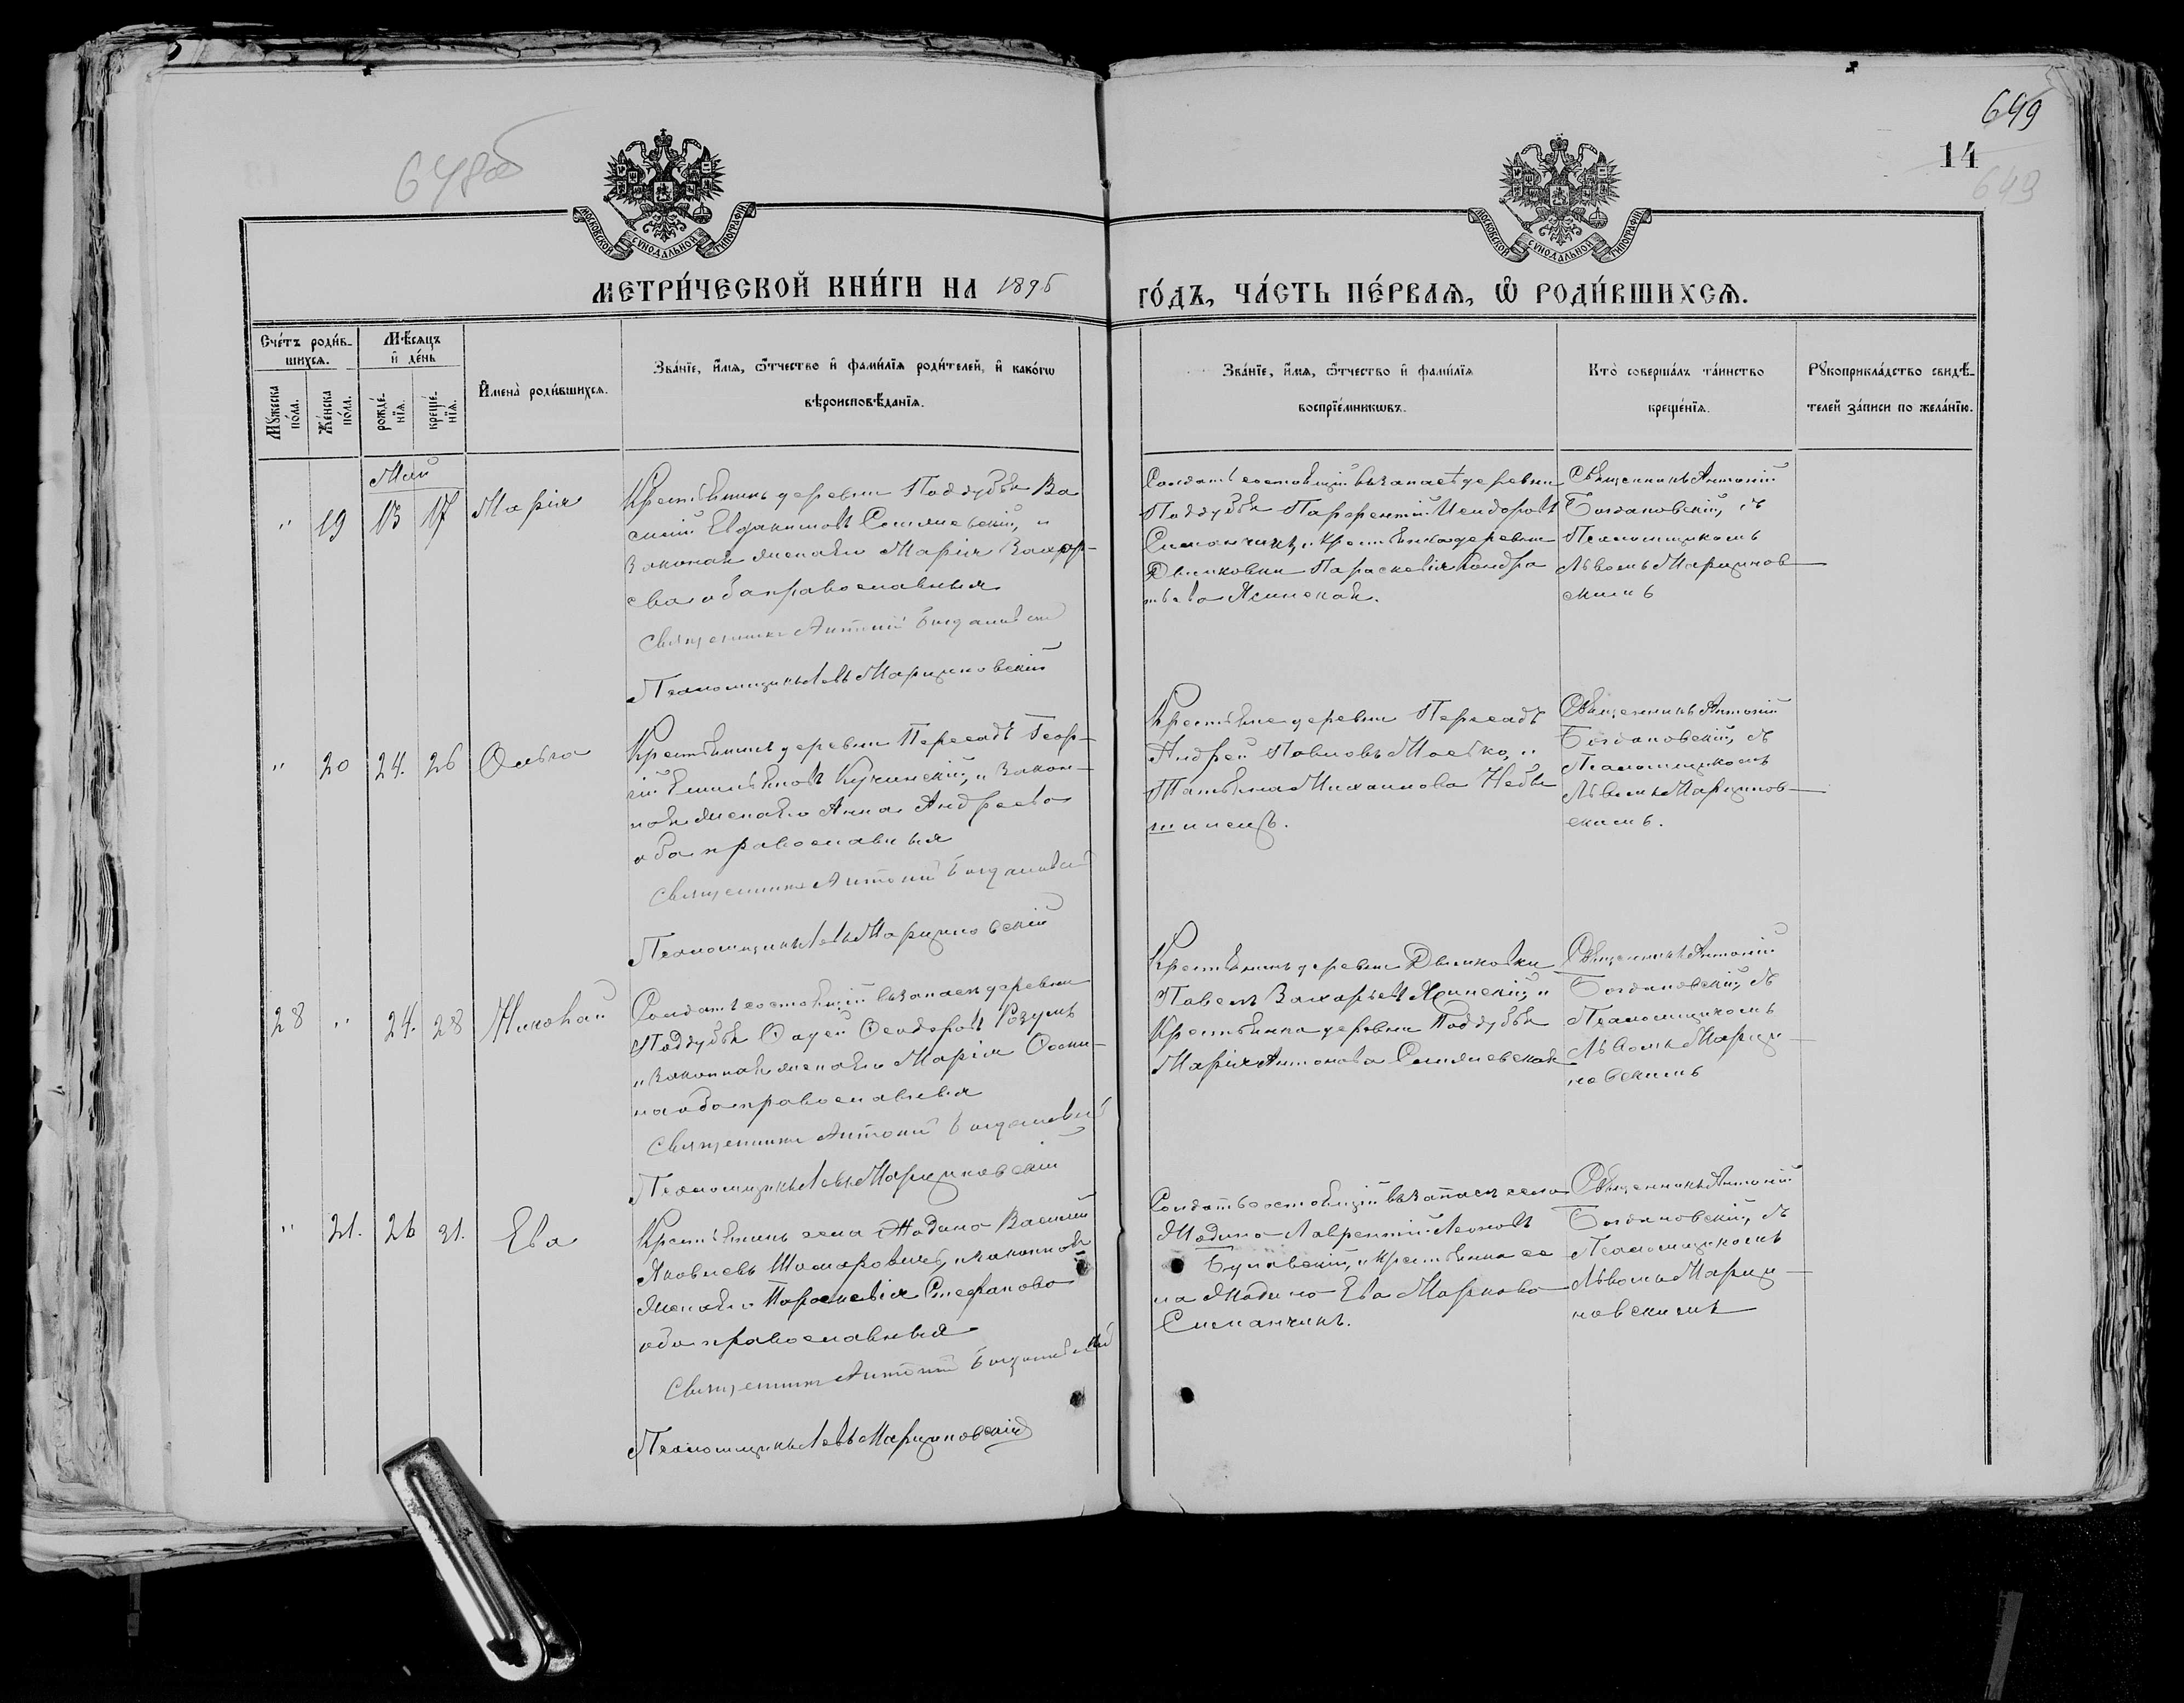 648об
649
14
649
МОСКОВСКОЙ СѴНОДАЛЬНОЙ ТИПОГРАФІИ
МОСКОВСКОЙ СѴНОДАЛЬНОЙ ТИПОГРАФІИ
МЕТРИ́ЧЕСКОЙ КНИ́ГИ НА 1896
ГО́ДЪ, ЧА́СТЬ ПЕ́РВАѦ, Ѽ РОДИ́ВШИХСѦ.
Сче́тъ роди́в-
шихсѧ.
Мѣ́сѧцъ
и҆ де́нь
Мꙋ́жеска
по́ла.
Же́нска
по́ла.
рожде́-
нїѧ.
креще́-
нїѧ.
И҆мена̀ роди́вшихсѧ.
Зва́нїе, и҆́мѧ, ѻ҆́тчество и҆ фами́лїѧ роди́телей, и҆ како́гѡ
вѣроисповѣ́данїѧ.
Зва́нїе, и҆́мѧ, ѻ҆́тчество и҆ фами́лїѧ
воспрїе́мникѡвъ.
Кто̀ соверша́лъ та́инство
креще́нїѧ.
Рꙋкоприкла́дство свидѣ́-
телей за́писи по жела́нїю.
Май
" 19 13 17 Марія
Крестьянинъ деревни Поддубья Ва
силій Евдокимовъ Селляевскій, и
законная жена его Марія Захар-
ева оба православныя
Священникъ Антоній Богдановскій
Псаломщикъ Левъ Марциновскій
Солдатъ состоящій въ запасѣ деревни
Поддубья Парфентій Исидоровъ
Симанчикъ, и крестьянка деревни
Дымковки Параскевія Кондра
тьева Ясинская.
Священникъ Антоній
Богдановскій, съ
Псаломщикомъ
Львомъ Марцинов-
скимъ
" 20 24. 26 Ольга
Крестьянинъ деревни Пересадъ Геор-
гій Емильяновъ Кучинскій, и закон-
ная жена его Анна Андреева
оба православныя
Священникъ Антоній Богдановскій
Псаломщикъ Левъ Марциновскій
Крестьяне деревни Пересадъ
Андрей Павловъ и
Татьяна Михаилова
Священникъ Антоній
Богдановскій, съ
Псаломщикомъ
Львомъ Марцинов-
скимъ.
28 " 24. 28 Николай
Солдатъ состоящій въ запасѣ деревни
Поддубья Фадей Феодоровъ Розумъ
и законная жена его Марія Фоми-
на оба православныя
Священникъ Антоній Богдановскій
Псаломщикъ Левъ Марциновскій
Крестьянинъ деревни Дымковки
Павелъ Захарьевъ Ясинскій, и
Крестьянка деревни Поддубья
Марія Антонова Селляевская
Священникъ Антоній
Богдановскій, съ
Псаломщикомъ
Львомъ Марци-
новскимъ
" 21. 26 31. Ева
Крестьянинъ села Жодина Василій
Яковлевъ Шамаровичъ, и законная
жена его Параскевія Стефанова
оба православныя
Священникъ Антоній Богдановскій
Псаломщикъ Левъ Марциновскій
Солдатъ состоящій въ запасѣ села
Жодина Лаврентій Леоновъ
и Крестьянка се
ла Жодино Ева Маркова
Симанчикъ.
Священникъ Антоній
Богдановскій, съ
Псаломщикомъ
Львомъ Марци-
новскимъ